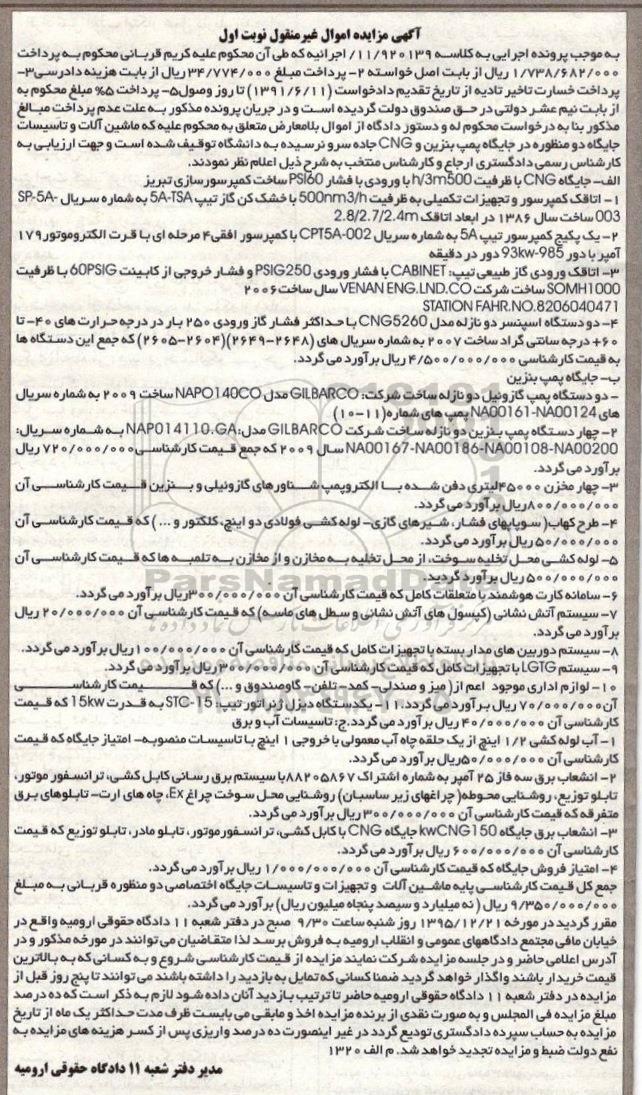 آگهی مزایده اموال غیرمنقول نوبت اول
به موجب پرونده اجرایی به کلاسه ۱۱/۹۲۰۱۳۹/ اجرائیه که طی آن محکوم علیه کریم قربانی محکوم به پرداخت
۱/۷۳۸/۶۸۲/۰۰۰ ریال از بابت اصل خواسته ۲- پرداخت مبلغ ۳۴/۷۷۴/۰۰۰ ریال از بابت هزینه دادرسی۳-
پرداخت خسارت تاخیر تادیه از تاریخ تقدیم دادخواست (۱۳۹۱/۶/۱۱) تا روز وصول۵- پرداخت ۵% مبلغ محکوم به
از بابت نیم عشر دولتی در حق صندوق دولت گردیده است و در جریان پرونده مذکور به علت عدم پرداخت مبالغ
مذکور بنا به درخواست محکوم له و دستور دادگاه از اموال بلامعارض متعلق به محکوم علیه که ماشین آلات و تاسیسات
جایگاه دو منظوره در جایگاه پمپ بنزین و CNG جاده سرو نرسیده به دانشگاه توقیف شده است و جهت ارزیابی به
کارشناس رسمی دادگستری ارجاع و کارشناس منتخب به شرح ذیل اعلام نظر نمودند.
الف- جایگاه CNG با ظرفیت h/3m500 با ورودی با فشار PSI60 ساخت کمپرسورسازی تبریز
۱- اتاقک کمپرسور و تجهیزات تکمیلی به ظرفیت 500nm3/h با خشک کن گاز تیپ 5A-TSA به شماره سریال SP-5A-
003 ساخت سال ۱۳۸۶ در ابعاد اتاقک 2.8/2.7/2.4m
۲- یک پکیج کمپرسور تیپ 5A به شماره سریال CPT5A-002 با کمپرسور افقی۴ مرحله ای با قدرت الکتروموتور۱۷۹
آمپر با دور 93kw-985 دور در دقیقه
۳- اتاقک ورودی گاز طبیعی تیپ: CABINET با فشار ورودی PSIG250 و فشار خروجی از کابینت 60PSIG با ظرفیت
SOMH1000 ساخت شرکت VENAN ENG.LND.CO سال ساخت۲۰۰۶
STATION FAHR.NO.8206040471
۴- دو دستگاه اسپنسر دو نازله مدل CNG5260 با حداکثر فشار گاز ورودی ۲۵۰ بار در درجه حرارت های ۴۰- تا
۶۰+ درجه سانتی گراد ساخت ۲۰۰۷ به شماره سریال های (۲۶۴۸-۲۶۴۹)(۲۶۰۴-۲۶۰۵) که جمع این دستگاه ها
به قیمت کارشناسی ۴/۵۰۰/۰۰۰/۰۰۰ ریال برآورد می گردد.
ب- جایگاه پمپ بنزین
- دو دستگاه پمپ گازوئیل دو نازله ساخت شرکت: GILBARCO مدل NAPO140CO ساخت ۲۰۰۹ به شماره سریال
های NA00161-NA00124 پمپ های شماره(۱۱-۱۰)
۲- چهار دستگاه پمپ بنزین دو نازله ساخت شرکت GILBARCO مدل:NAP014110.GA به شماره سریال:
NA00167-NA00186-NA00108-NA00200 سال ۲۰۰۹ که جمع قیمت کارشناسی ۷۲۰/۰۰۰/۰۰۰ ریال
برآورد می گردد.
۳- چهار مخزن ۴۵۰۰۰لیتری دفن شده با الکتروپمپ شناورهای گازوئیلی و بنزین قیمت کارشناسی آن
۸۰۰/۰۰۰/۰۰۰ریال برآورد می گردد.
۴- طرح کهاب( سوپاپهای فشار، شیرهای گازی- لوله کشی فولادی دو اینچ، کلکتور و ... ) که قیمت کارشناسی آن
۵۰/۰۰۰/۰۰۰ ریال برآورد می گردد.
۵- لوله کشی محل تخلیه سوخت، از محل تخلیه به مخازن و از مخازن به تلمبه ها که قیمت کارشناسی آن
۵۰۰/۰۰۰/۰۰۰ ریال برآورد گردید.
۶- سامانه کارت هوشمند با متعلقات کامل که قیمت کارشناسی آن ۳۰۰/۰۰۰/۰۰۰ریال برآورد می گردد.
۷- سیستم آتش نشانی (کپسول های آتش نشانی و سطل های ماسه) که قیمت کارشناسی آن ۲۰/۰۰۰/۰۰۰ ریال
برآورد می گردد.
۸- سیستم دوربین های مدار بسته با تجهیزات کامل که قیمت کارشناسی آن ۱۰۰/۰۰۰/۰۰۰ریال برآورد می گردد.
۹- سیستم LGTG با تجهیزات کامل که قیمت کارشناسی آن ۳۰۰/۰۰۰/۰۰۰ ریال برآورد می گردد.
۱۰- لوازم اداری موجود اعم از( میز و صندلی- کمد- تلفن- گاوصندوق و ...) که قیمت کارشناسی
آن ۷۰/۰۰۰/۰۰۰ ریال برآورد می گردد.۱۱- یکدستگاه دیزل ژنراتور تیپ: STC-15 به قدرت 15kw که قیمت
کارشناسی آن ۴۰/۰۰۰/۰۰۰ ریال برآورد می گردد.ج: تاسیسات آب و برق
۱- آب لوله کشی ۱/۲ اینچ از یک حلقه چاه آب معمولی با خروجی ۱ اینچ با تاسیسات منصوبه- امتیاز جایگاه که قیمت
کارشناسی آن ۵۰/۰۰۰/۰۰۰ریال برآورد می گردد.
۲- انشعاب برق سه فاز ۲۵ آمپر به شماره اشتراک ۸۸۲۰۵۸۶۷با سیستم برق رسانی کابل کشی، ترانسفور موتور،
تابلو توزیع، روشنایی محوطه( چراغهای زیر ساسبان) روشنایی محل سوخت چراغ Ex، چاه های ارت- تابلوهای برق
متفرقه که قیمت کارشناسی آن ۳۰۰/۰۰۰/۰۰۰ ریال برآورد می گردد.
۳- انشعاب برق جایگاه kwCNG150 جایگاه CNG با کابل کشی، ترانسفورموتور، تابلو مادر، تابلو توزیع که قیمت
کارشناسی آن ۶۰۰/۰۰۰/۰۰۰ ریال برآورد می گردد.
۴- امتیاز فروش جایگاه که قیمت کارشناسی آن ۱/۰۰۰/۰۰۰/۰۰۰ ریال برآورد می گردد.
جمع کل قیمت کارشناسی پایه ماشین آلات و تجهیزات و تاسیسات جایگاه اختصاصی دو منظوره قربانی به مبلغ
۹/۳۵۰/۰۰۰/۰۰۰ ریال ( نه میلیارد و سیصد پنجاه میلیون ریال) برآورد می گردد.
مقرر گردید در مورخه ۱۳۹۵/۱۲/۲۱ روز شنبه ساعت ۹/۳۰ صبح در دفتر شعبه ۱۱ دادگاه حقوقی ارومیه واقع در
خیابان مافی مجتمع دادگاههای عمومی و انقلاب ارومیه به فروش برسد لذا متقاضیان می توانند در مورخه مذکور و در
آدرس اعلامی حاضر و در جلسه مزایده شرکت نمایند مزایده از قیمت کارشناسی شروع و به کسانی که به بالاترین
قیمت خریدار باشند واگذار خواهد گردید ضمنا کسانی که تمایل به بازدید را داشته باشند می توانند تا پنج روز قبل از
مزایده در دفتر شعبه ۱۱ دادگاه حقوقی ارومیه حاضر تا ترتیب بازدید آنان داده شود لازم به ذکر است که ده درصد
مبلغ مزایده فی المجلس و به صورت نقدی از برنده مزایده اخذ و مابقی می بایست ظرف مدت حداکثر یک ماه از تاریخ
مزایده به حساب سپرده دادگستری تودیع گردد در غیر اینصورت ده درصد واریزی پس از کسر هزینه های مزایده به
نفع دولت ضبط و مزایده تجدید خواهد شد. م الف ۱۳۲۰
مدیر دفتر شعبه ۱۱ دادگاه حقوقی ارومیه